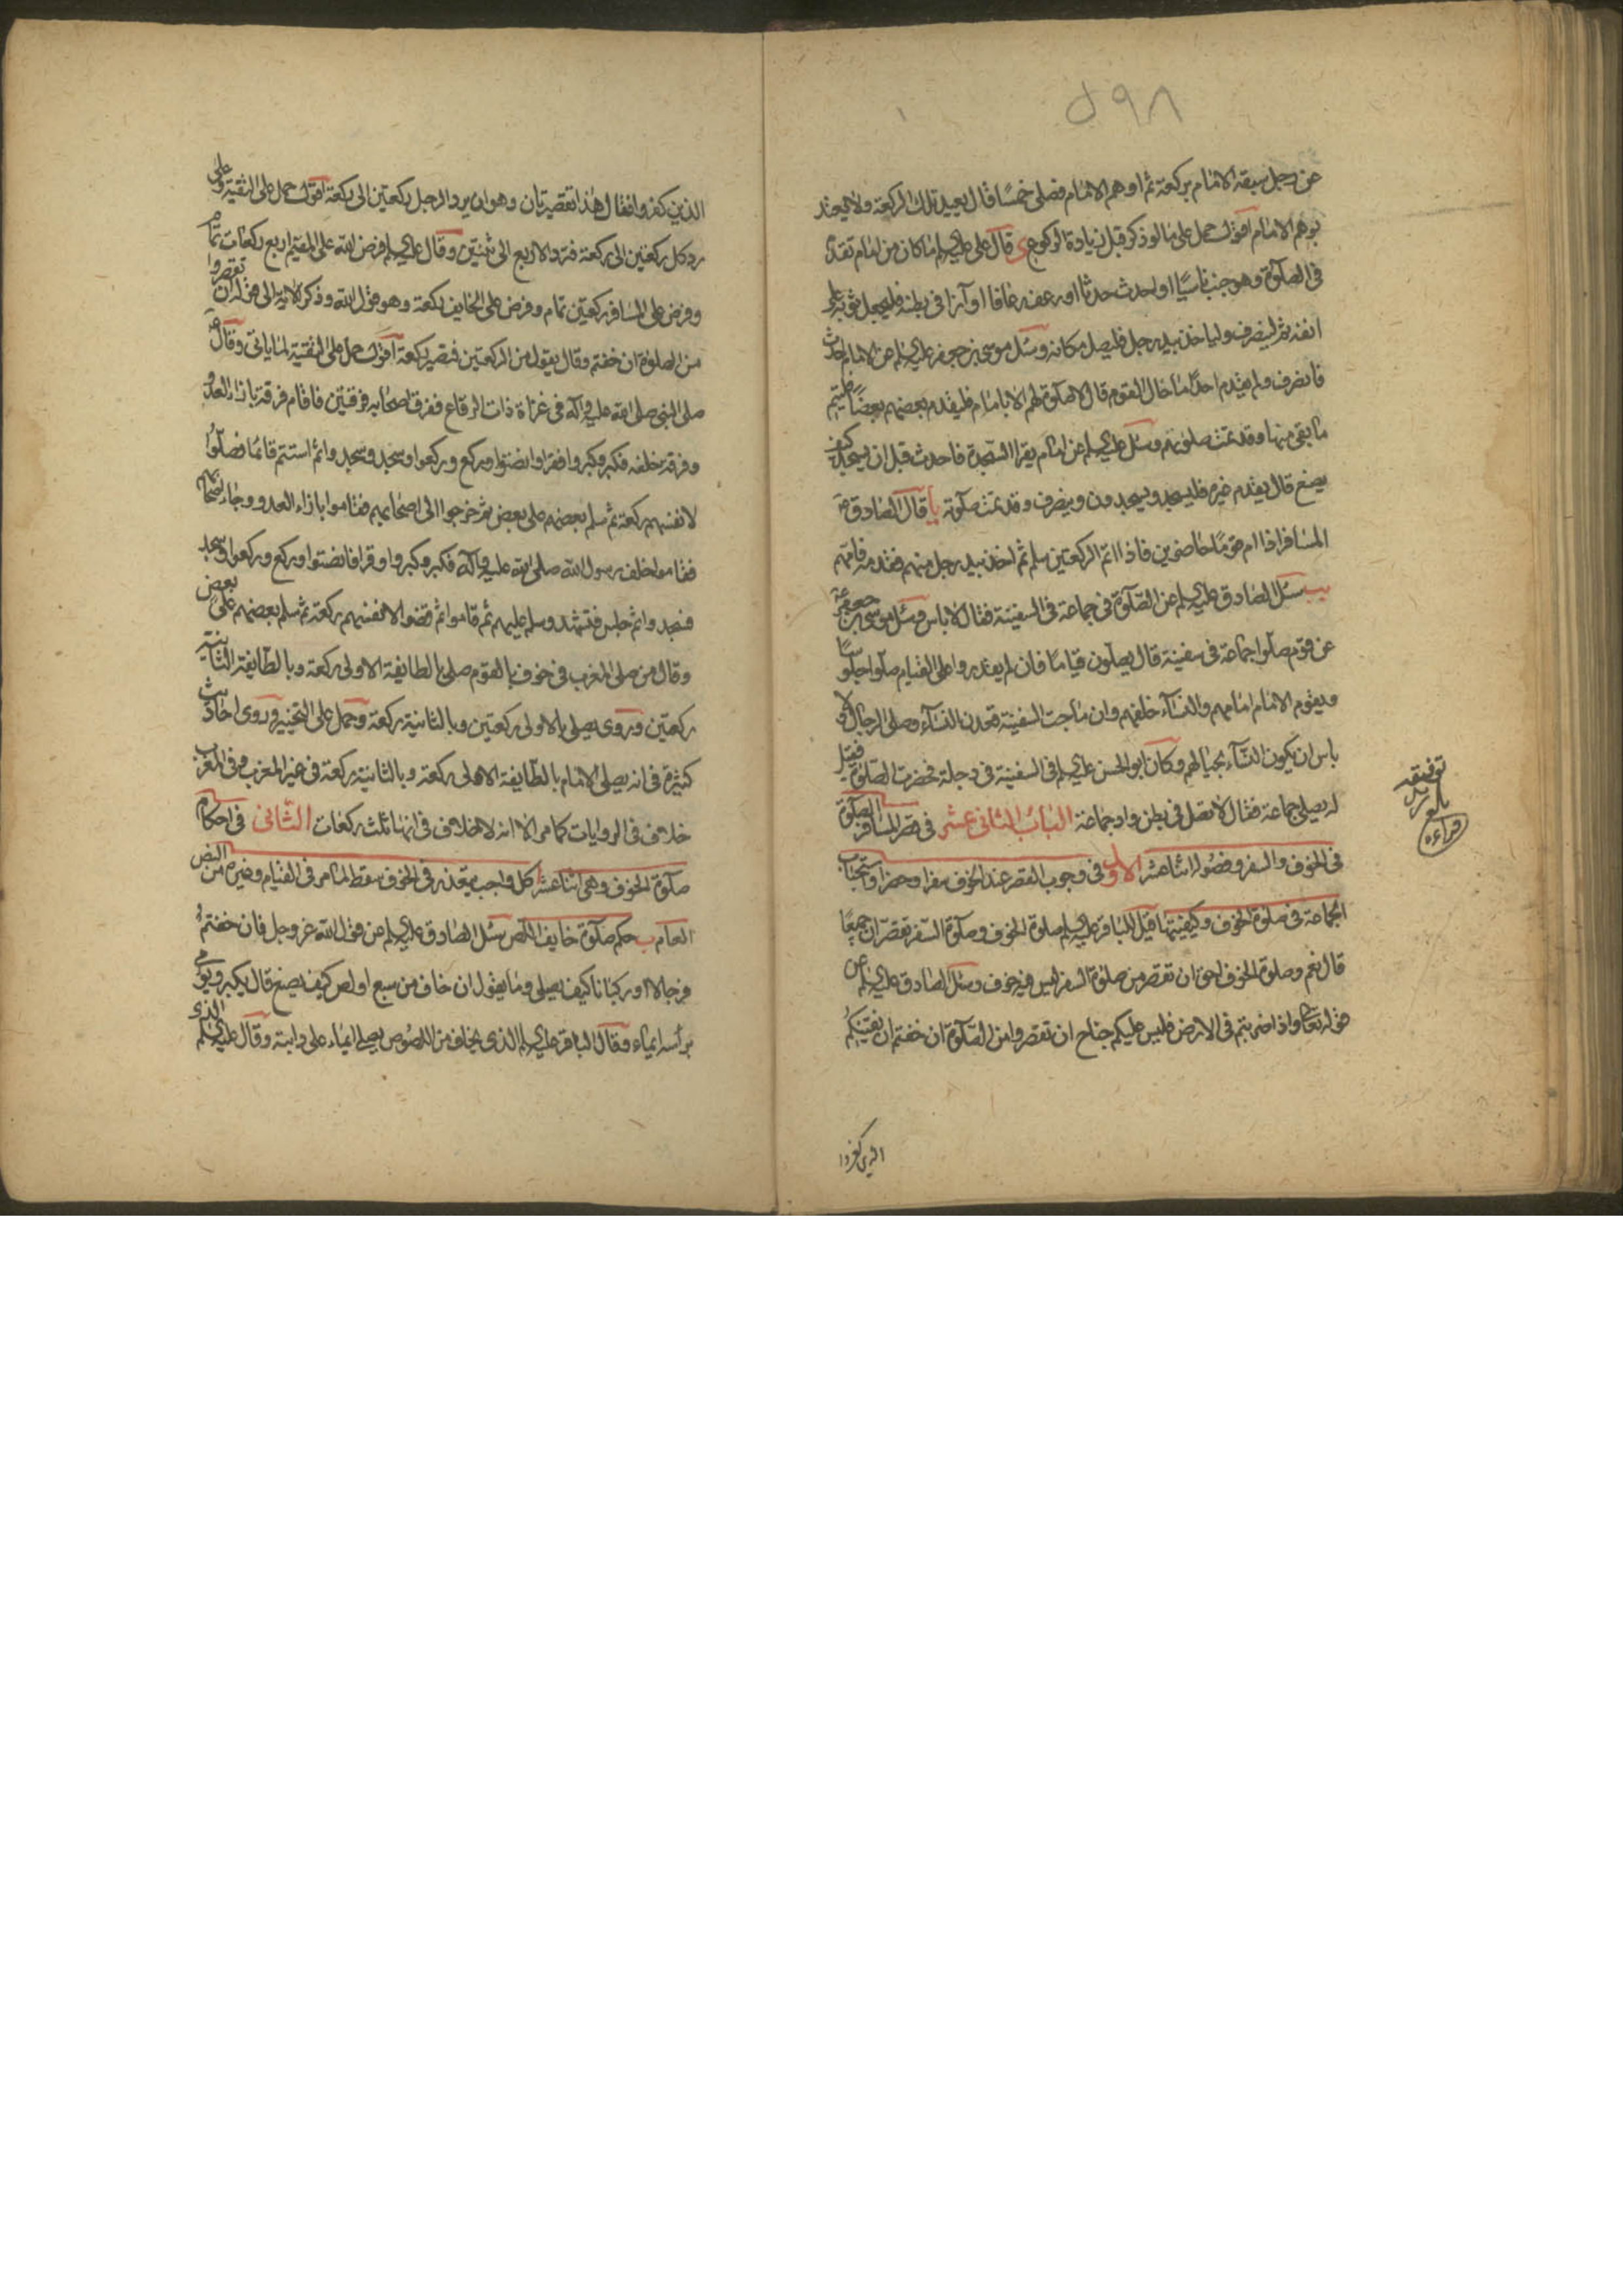 ٥٩٨
عن رجل سبقه الامام بركعة ثم اوهم الامام فصلى خمسا قال يعيد تلك الركعة ولا يعتد
بوهم الامام اقول حمل على ما لو ذكر قبل زيادة الركوع ى قال على عليه السلم ما كان من امام تقدم
فى الصلوة وهو جنب ناسيا او احدث حدثا او رعف رعافا او آزا فى بطنه فليجعل ثوبه على
انفه ثم لينصرف ولياخذ بيد رجل فليصل مكانه وسئل موسى بن جعفر عليه السلم عن الامام احدث
فانصرف ولم يقدم احدا ما حال القوم قال لا صلوة لهم الا بامام فليقدم بعضهم بعضا فليتم
ما بقى منها وقد تمت صلوتهم وسئل عليه السلم عن امام يقرا السجدة فاحدث قبل ان يسجد كيف
يصنع قال يقدم غيره فليسجد ويسجدون وينصرف وقد تمت صلوته يا قال الصادق ع
المسافر اذا ام قوما حاضرين فاذا اتم الركعتين سلم ثم اخذ بيد رجل منهم فقدمه فامهم
يب سئل الصادق عليه السلم عن الصلوة فى جماعة فى السفينة فقال لا باس وسئل موسى بن جعفر ع
عن قوم صلوا جماعة فى سفينة قال يصلون قياما فان لم يقدروا على القيام صلوا جلوسا
ويقوم الامام امامهم والنساء خلفهم وان ماجت السفينة قعدن النساء وصلى الرجال ولا
باس ان يكون النساء بحيالهم وكان ابو الحسن عليه السلم فى السفينة فى دجلة فحضرت الصلوة فقيل
له يصلى جماعة فقال لا تصل فى بطن واد جماعة الباب الثانى عشر فى قصر المسافر الصلوة
فى الخوف والسفر وفصوله اثنا عشر الاول فى وجوب القصر عند الخوف سفرا وحضرا واستحباب
الجماعة فى صلوة الخوف وكيفيتها قيل للباقر عليه السلم صلوة الخوف وصلوة السفر تقصران جميعا
قال نعم وصلوة الخوف احق ان تقصر من صلوة السفر ليس فيه خوف وسئل الصادق عليه السلم عن
قوله تعالى واذا ضربتم فى الارض فليس عليكم جناح ان تقصروا من الصلوة ان خفتم ان يفتنكم
الذين كفروا
الذين كفروا فقال هذا تقصير ثان وهو ان يرد الرجل ركعتين الى ركعة اقول حمل على التقية وعلى
رد كل ركعتين الى ركعة فترد الاربع الى ثنتين وقال عليه السلم فرض الله على المقيم اربع ركعات تمام
وفرض على المسافر ركعتين تمام وفرض على الخايف ركعة وهو قول الله وذكر الاية الى قوله ان تقصروا
من الصلوة ان خفتم وقال يقول من الركعتين فتصير ركعة اقول حمل على التقية لما ياتى وقال ع
صلى النبى صلى الله عليه وآله فى غزاة ذات الرقاع ففرق اصحابه فرقتين فاقام فرقة بازاء العدو
وفرقة خلفه فكبر وكبروا فقرا وانصتوا وركع وركعوا وسجد وسجدوا ثم استتم قائما فصلوا
لانفسهم ركعة ثم سلم بعضهم على بعض ثم خرجوا الى اصحابهم فقاموا بازاء العدو وجاء اصحابهم
فقاموا خلف رسول الله صلى الله عليه وآله فكبر وكبروا وقرا فانصتوا وركع وركعوا وسجد
فسجدوا ثم جلس فتشهد وسلم عليهم ثم قاموا ثم قضوا لانفسهم ركعة ثم سلم بعضهم على بعض
وقال من صلى المغرب فى خوف بالقوم صلى بالطايفة الاولى ركعة وبالطايفة الثانية
ركعتين وروى يصلى بالاولى ركعتين وبالثانية ركعة وحمل على التخيير وروى احاديث
كثيرة فى انه يصلى الامام بالطايفة الاولى ركعة وبالثانية ركعة فى غير المغرب وفى المغرب
خلاف فى الروايات كما مر الا انه لا خلاف فى انها ثلث ركعات الثانى فى احكام
صلوة الخوف وهى اثنا عشر ا كل واجب يتعذر فى الخوف سقط لما مر فى القيام وغيره من النص
العام ب حكم صلوة خايف اللص سئل الصادق عليه السلم عن قول الله عز وجل فان خفتم
فرجالا او ركبانا كيف يصلى وما يقول ان خاف من سبع او لص كيف يصنع قال يكبر ويومى
براسه ايماء وقال الباقر عليه السلم الذى يخاف من اللصوص يصلى ايماء على دابته وقال عليه السلم الذى